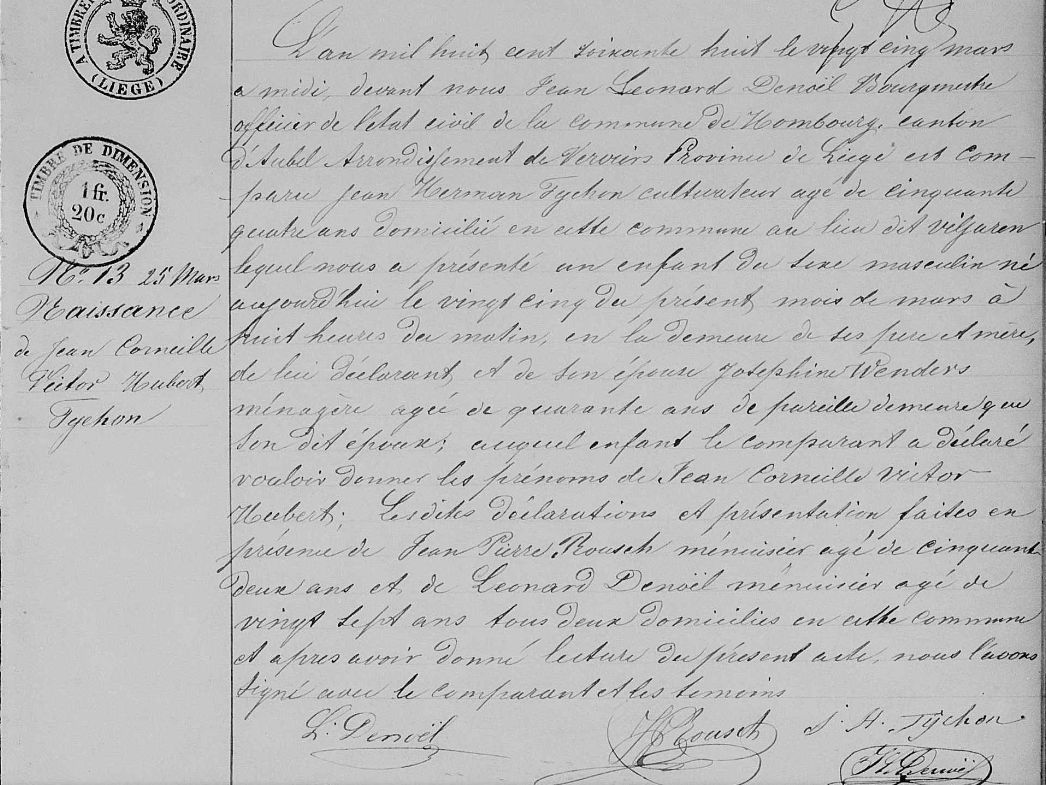 A TIMBRE
ORDINAIRE
(LIÉGE)
TIMBRE DE DIMENSION
1 fr.
20 c
No. 13 25 Mars
Naissance
de Jean Corneille
Victor Hubert
Tychon
L'an mil huit cent soixante huit le vingt cinq mars
a midi, devant nous Jean Leonard Denoël Bourgmestre
officier de l'état civil de la commune de Hombourg, canton
d'Aubel Arrondissement de Verviers Province de Liége est com-
paru Jean Herman Tychon cultivateur agé de cinquante
quatre ans domicilié en cette commune au lieu dit
lequel nous a présenté un enfant du sexe masculin né
aujourd'hui le vingt cinq du présent mois de mars à
huit heures du matin, en la demeure de ses pere et mère,
de lui déclarant et de son épouse Josephine Wenders
ménagère agée de quarante ans de pareille demeure que
son dit époux; auquel enfant le comparant a déclaré
vouloir donner les prénoms de Jean Corneille Victor
Hubert; Lesdites déclarations et présentation faites en
présence de Jean Pierre Rousch ménuisier agé de cinquant
deux ans et de Leonard Denoël ménuisier agé de
vingt sept ans tous deux domicilies en cette commune
et apres avoir donné lecture du présent acte, nous l'avons
signé avec le comparant et les temoins
L. Denoël
Rousch
J. H. Tychon
Denoël